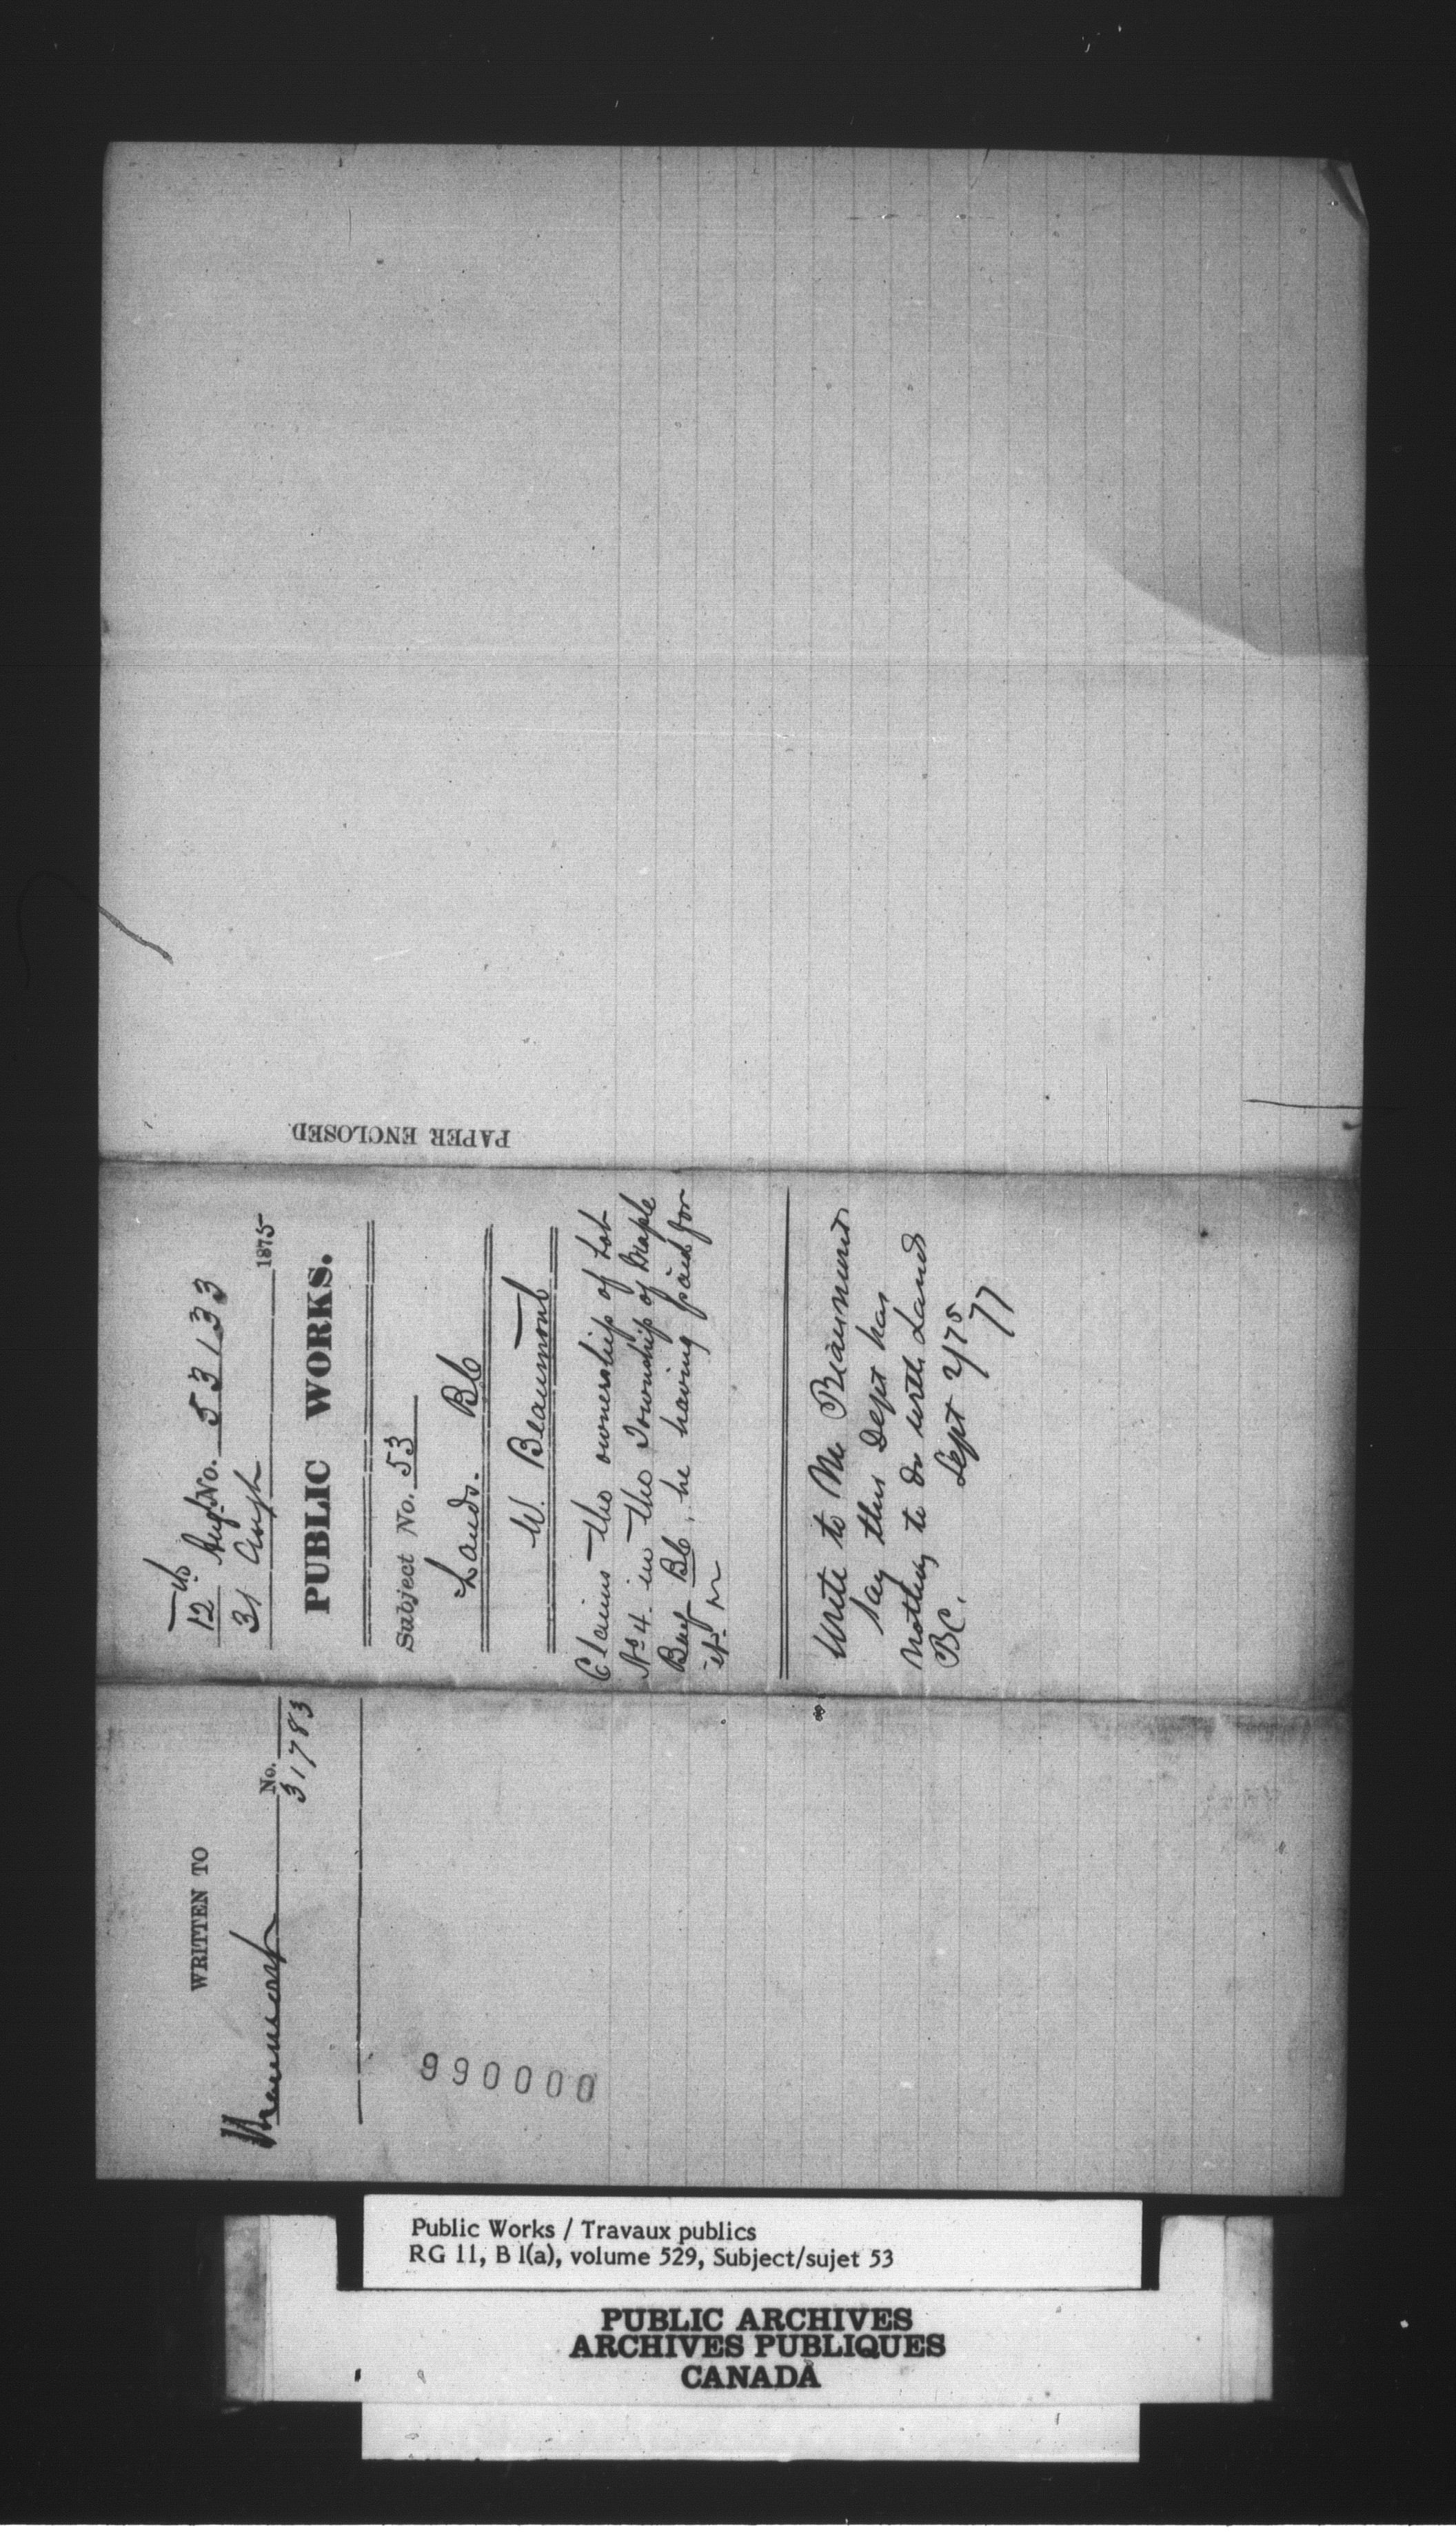 12th Augt. No. 53133
31 Augt 1875
PUBLIC WORKS.
Subject No. 53
Lands. BC
W. Beaumont
Claims the ownership of Lot
No 4. in the Township of Maple
Bay BC, he having paid for
it.
Write to Mr Beaumont
say this Dept has
nothing to do with Lands
BC.
Sept 2/75
PAPER ENCLOSED.
WRITTEN TO
Beaumont No. 31783
990000
Public Works / Travaux publics
RG 11, B 1(a), volume 529, Subject/sujet 53
PUBLIC ARCHIVES
ARCHIVES PUBLIQUES
CANADA